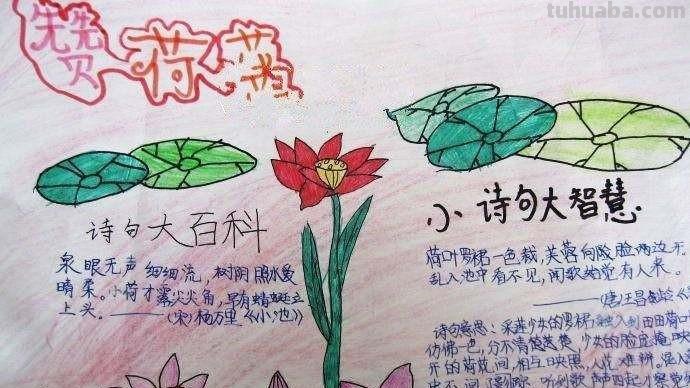 tuhuaba.com
赞荷
诗句大百科
泉眼无声细细流，树阴照水爱
晴柔。小荷才露尖尖角，早有蜻蜓立
上头。——(宋)杨万里《小池》
小诗句大智慧
荷叶罗裙一色裁，芙蓉向脸两边开
乱入池中看不见，闻歌始觉有人来。
——(唐)王昌龄《
诗句意思：采莲少女的罗裙融入到田田荷
仿佛一色，分不清楚，少女的脸庞掩映
开的荷花间，相互映照，人花难辨。